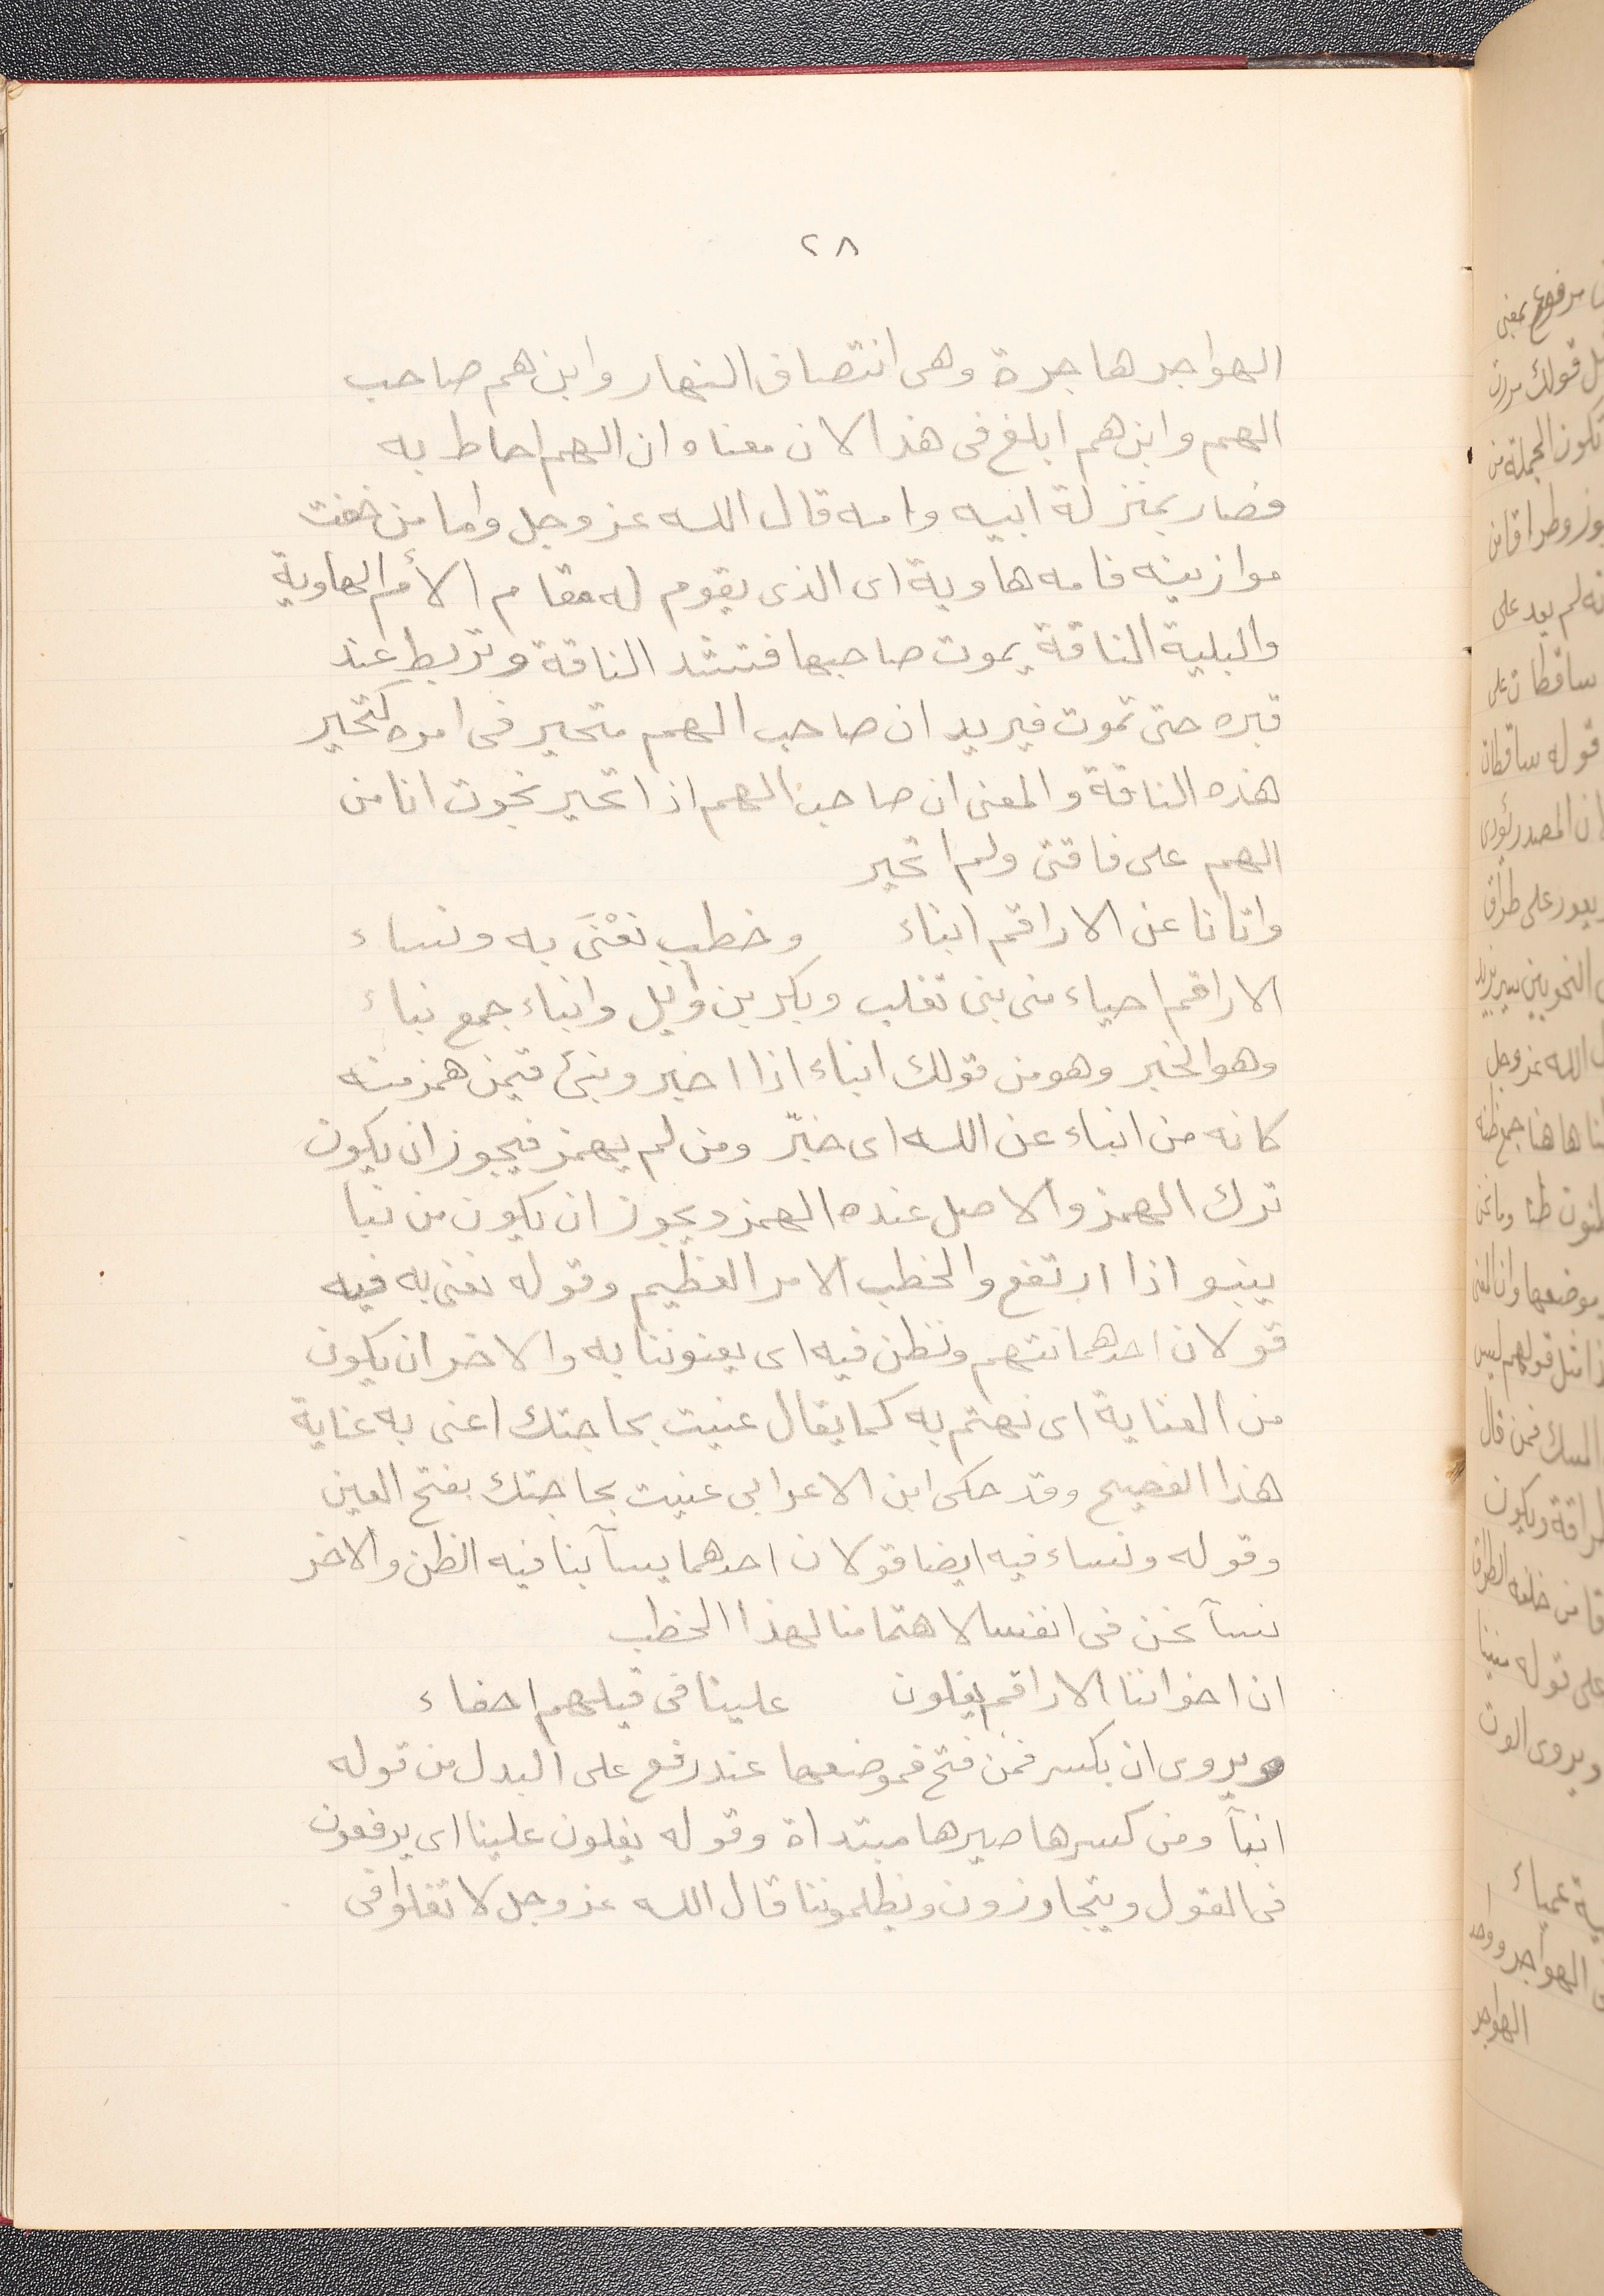 ٢٨
الهواجر هاجرة وهى انتصاف النهار وابن هم صاحب
الهم وابن هم ابلغ فى هذا لان معناه ان الهم احاط به
فصار بمنزلة ابيه وامه قال الله عز وجل واما من خفت
موازينه فامه هاوية اى الذى يقوم له مقام الأم الهاوية
والبلية الناقة يموت صاحبها فتشد الناقة وتربط عند
قبره حتى تموت فيريد ان صاحب الهم متحير فى امره كتحير
هذه الناقة والمعنى ان صاحب الهم اذا تحير نجوت انا من
الهم على ناقتى ولم اتحير
واتانا عن الاراقم انباء وخطب نعْنَى به ونساء
الاراقم احياء من بنى تغلب وبكر بن وايل وانباء جمع نباء
وهو الخبر وهو من قولك انباء اذا اخبر ونبئ فيمن همز منه
كانه من انباء عن الله اى خبّر ومن لم يهمز فيجوز ان يكون
ترك الهمز والاصل عنده الهمز ويجوز ان يكون من نبا
ينبو اذا ارتفع والخطب الامر العظيم وقوله نعنى به فيه
قولان احدهما نتهم ونظن فيه اى يعنوننا به والاخر ان يكون
من العناية اى نهتم به كما يقال عنيت بحاجتك اعنى به عناية
هذا الفصيح وقد حكى ابن الاعرابى عنيت بحاجتك بفتح العين
وقوله ونساء فيه ايضا قولان احدهما يسآ بنا فيه الظن والاخر
نسآ نحن فى انفسنا لاهتمامنا لهذا الخطب
ان اخواننا الاراقم يغلون علينا فى قيلهم احفاء
ويروى ان بكسر فمن فتح فموضعها عند رفع على البدل من قوله
انبآ ومن كسرها صيرها مبتداة وقوله يغلون علينا اى يرفعون
فى القول ويتجاوزون ويظلموننا قال الله عز وجل لا تغلوا فى
مرفوع بمعنى
قولك مررت
تكون الجملة من
لم يعد على
ساقطان على
قوله ساقطان
ان المصدر يؤدى
الله عز وجل
موضعها وان
مثل قولهم ليس
فمن قال
ويكون
على قوله
ويروى
عمياء
الهواجر
الهواجر